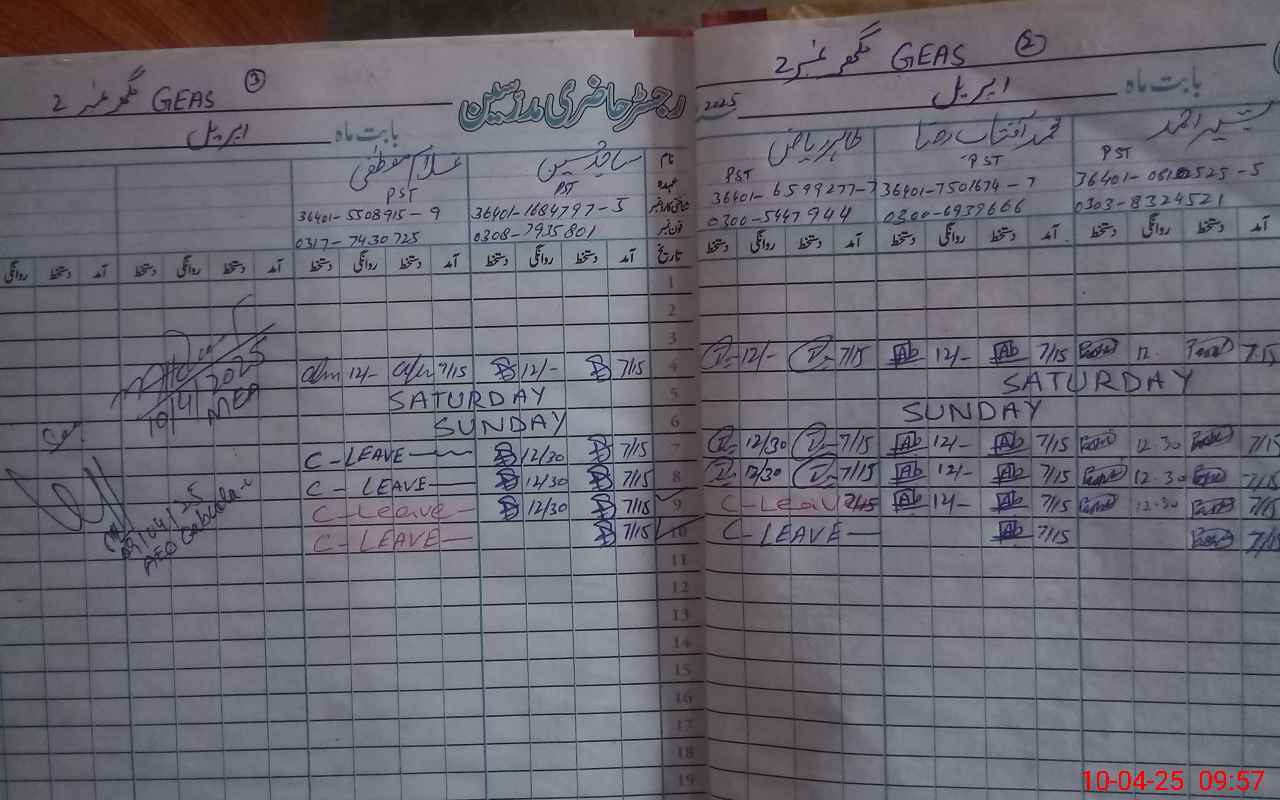 گھر نمبر 2 GEAS ③
رجسٹر حاضری مدرسین
بابت ماہ اپریل
نام
غلام مصطفی
ساجد حسین
PST
PST
عہدہ
36401-5508915-9
36401-1684797-5
شناختی کارڈ نمبر
0317-7430725
0308-7935801
فون نمبر
روانگی دستخط آمد دستخط روانگی دستخط آمد دستخط روانگی دستخط آمد دستخط روانگی دستخط آمد تاریخ
1
2
3
12/- 7/15 12/- 7/15 4
SATURDAY 5
SUNDAY 6
C-LEAVE 12/30 7/15 7
C-LEAVE 12/30 7/15 8
C-Leave 12/30 7/15 9
C-LEAVE 7/15 10
11
12
13
14
15
16
17
18
19
10/4/2025
MEA
09/04/25
AEO
گھر نمبر 2 GEAS ②
2025
بابت ماہ اپریل
طاہر ریاض
محمد آفتاب رضا
بشیر احمد
PST
PST
PST
36401-6599277-7
36401-7501674-7
0300-5447944
0300-6939666
0303-8324521
دستخط روانگی دستخط آمد دستخط روانگی دستخط آمد دستخط روانگی دستخط آمد
12/- 7/15 Ab 12/- Ab 7/15 12. 7.15
SATURDAY
SUNDAY
12/30 7/15 Ab 12/- Ab 7/15 12.30 7/15
12/30 7/15 Ab 12/- Ab 7/15 12.30 7/15
C-Leave 7/15 Ab 12/- Ab 7/15 12.30 7/15
C-LEAVE Ab 7/15 7/15
10-04-25 09:57